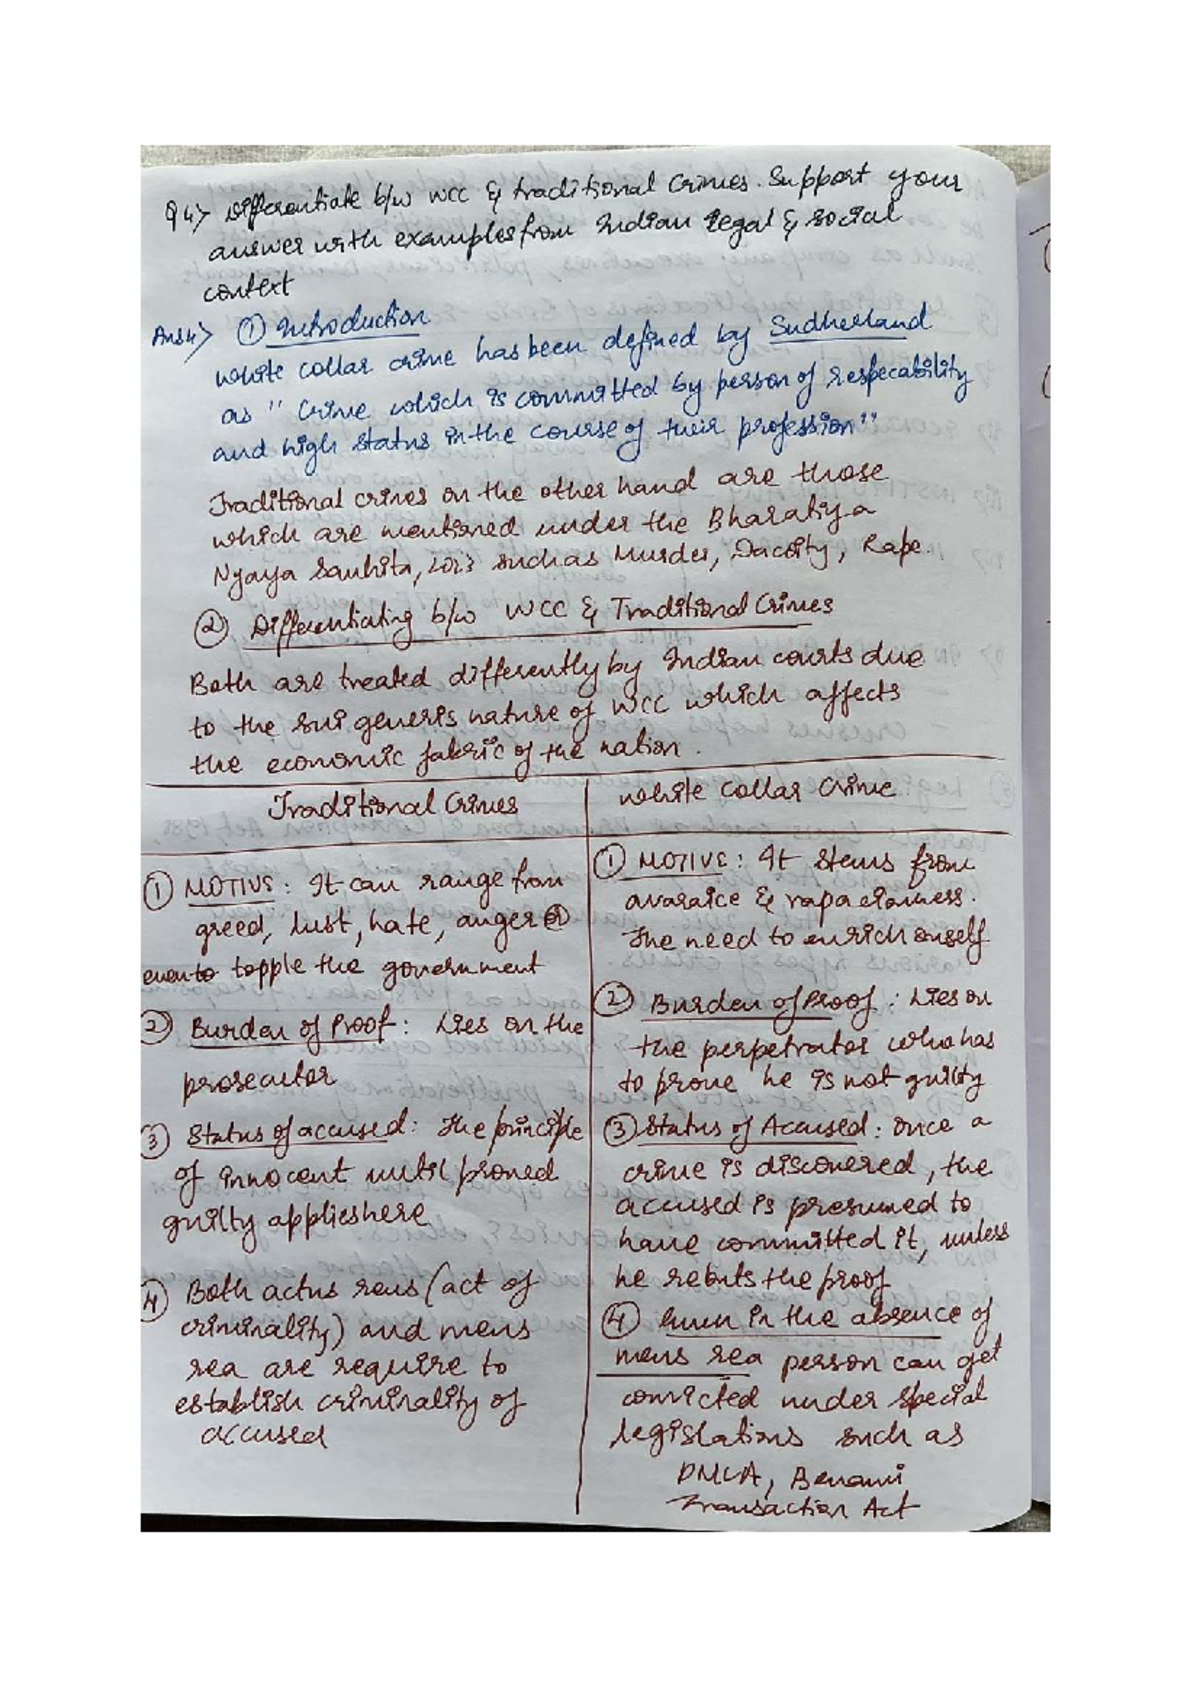 Q4> Differentiate b/w WCC & traditional Crimes. Support your
answer with examples from Indian legal & social
context
Ans4> ① Introduction
White collar crime has been defined by Sudherland
as " Crime which is committed by person of respecability
and high status in the course of their profession"
Traditional crimes on the other hand are those
which are mentioned under the Bharatiya
Nyaya Sanhita, 2023 such as Murder, Dacoity, Rape.
② Differentiating b/w WCC & Traditional Crimes
Both are treated differently by Indian courts due
to the sui generis nature of WCC which affects
the economic fabric of the nation.
Traditional Crimes
① MOTIVE: It can range from
greed, lust, hate, anger or
even to topple the government
② Burden of Proof: Lies on the
prosecutor
③ Status of accused: The principle
of innocent until proved
guilty applies here
④ Both actus reus (act of
criminality) and mens
rea are require to
establish criminality of
accused
White Collar Crime
① MOTIVE: It stems from
avaraice & rapaciousness.
The need to enrich onself
② Burden of Proof: Lies on
the perpetrator who has
to prove he is not guilty
③ Status of Accused: Once a
crime is discovered, the
accused is presumed to
have committed it, unless
he rebuts the proof
④ Even in the absence of
mens rea person can get
convicted under special
legislations such as
PMLA, Benami
Transaction Act